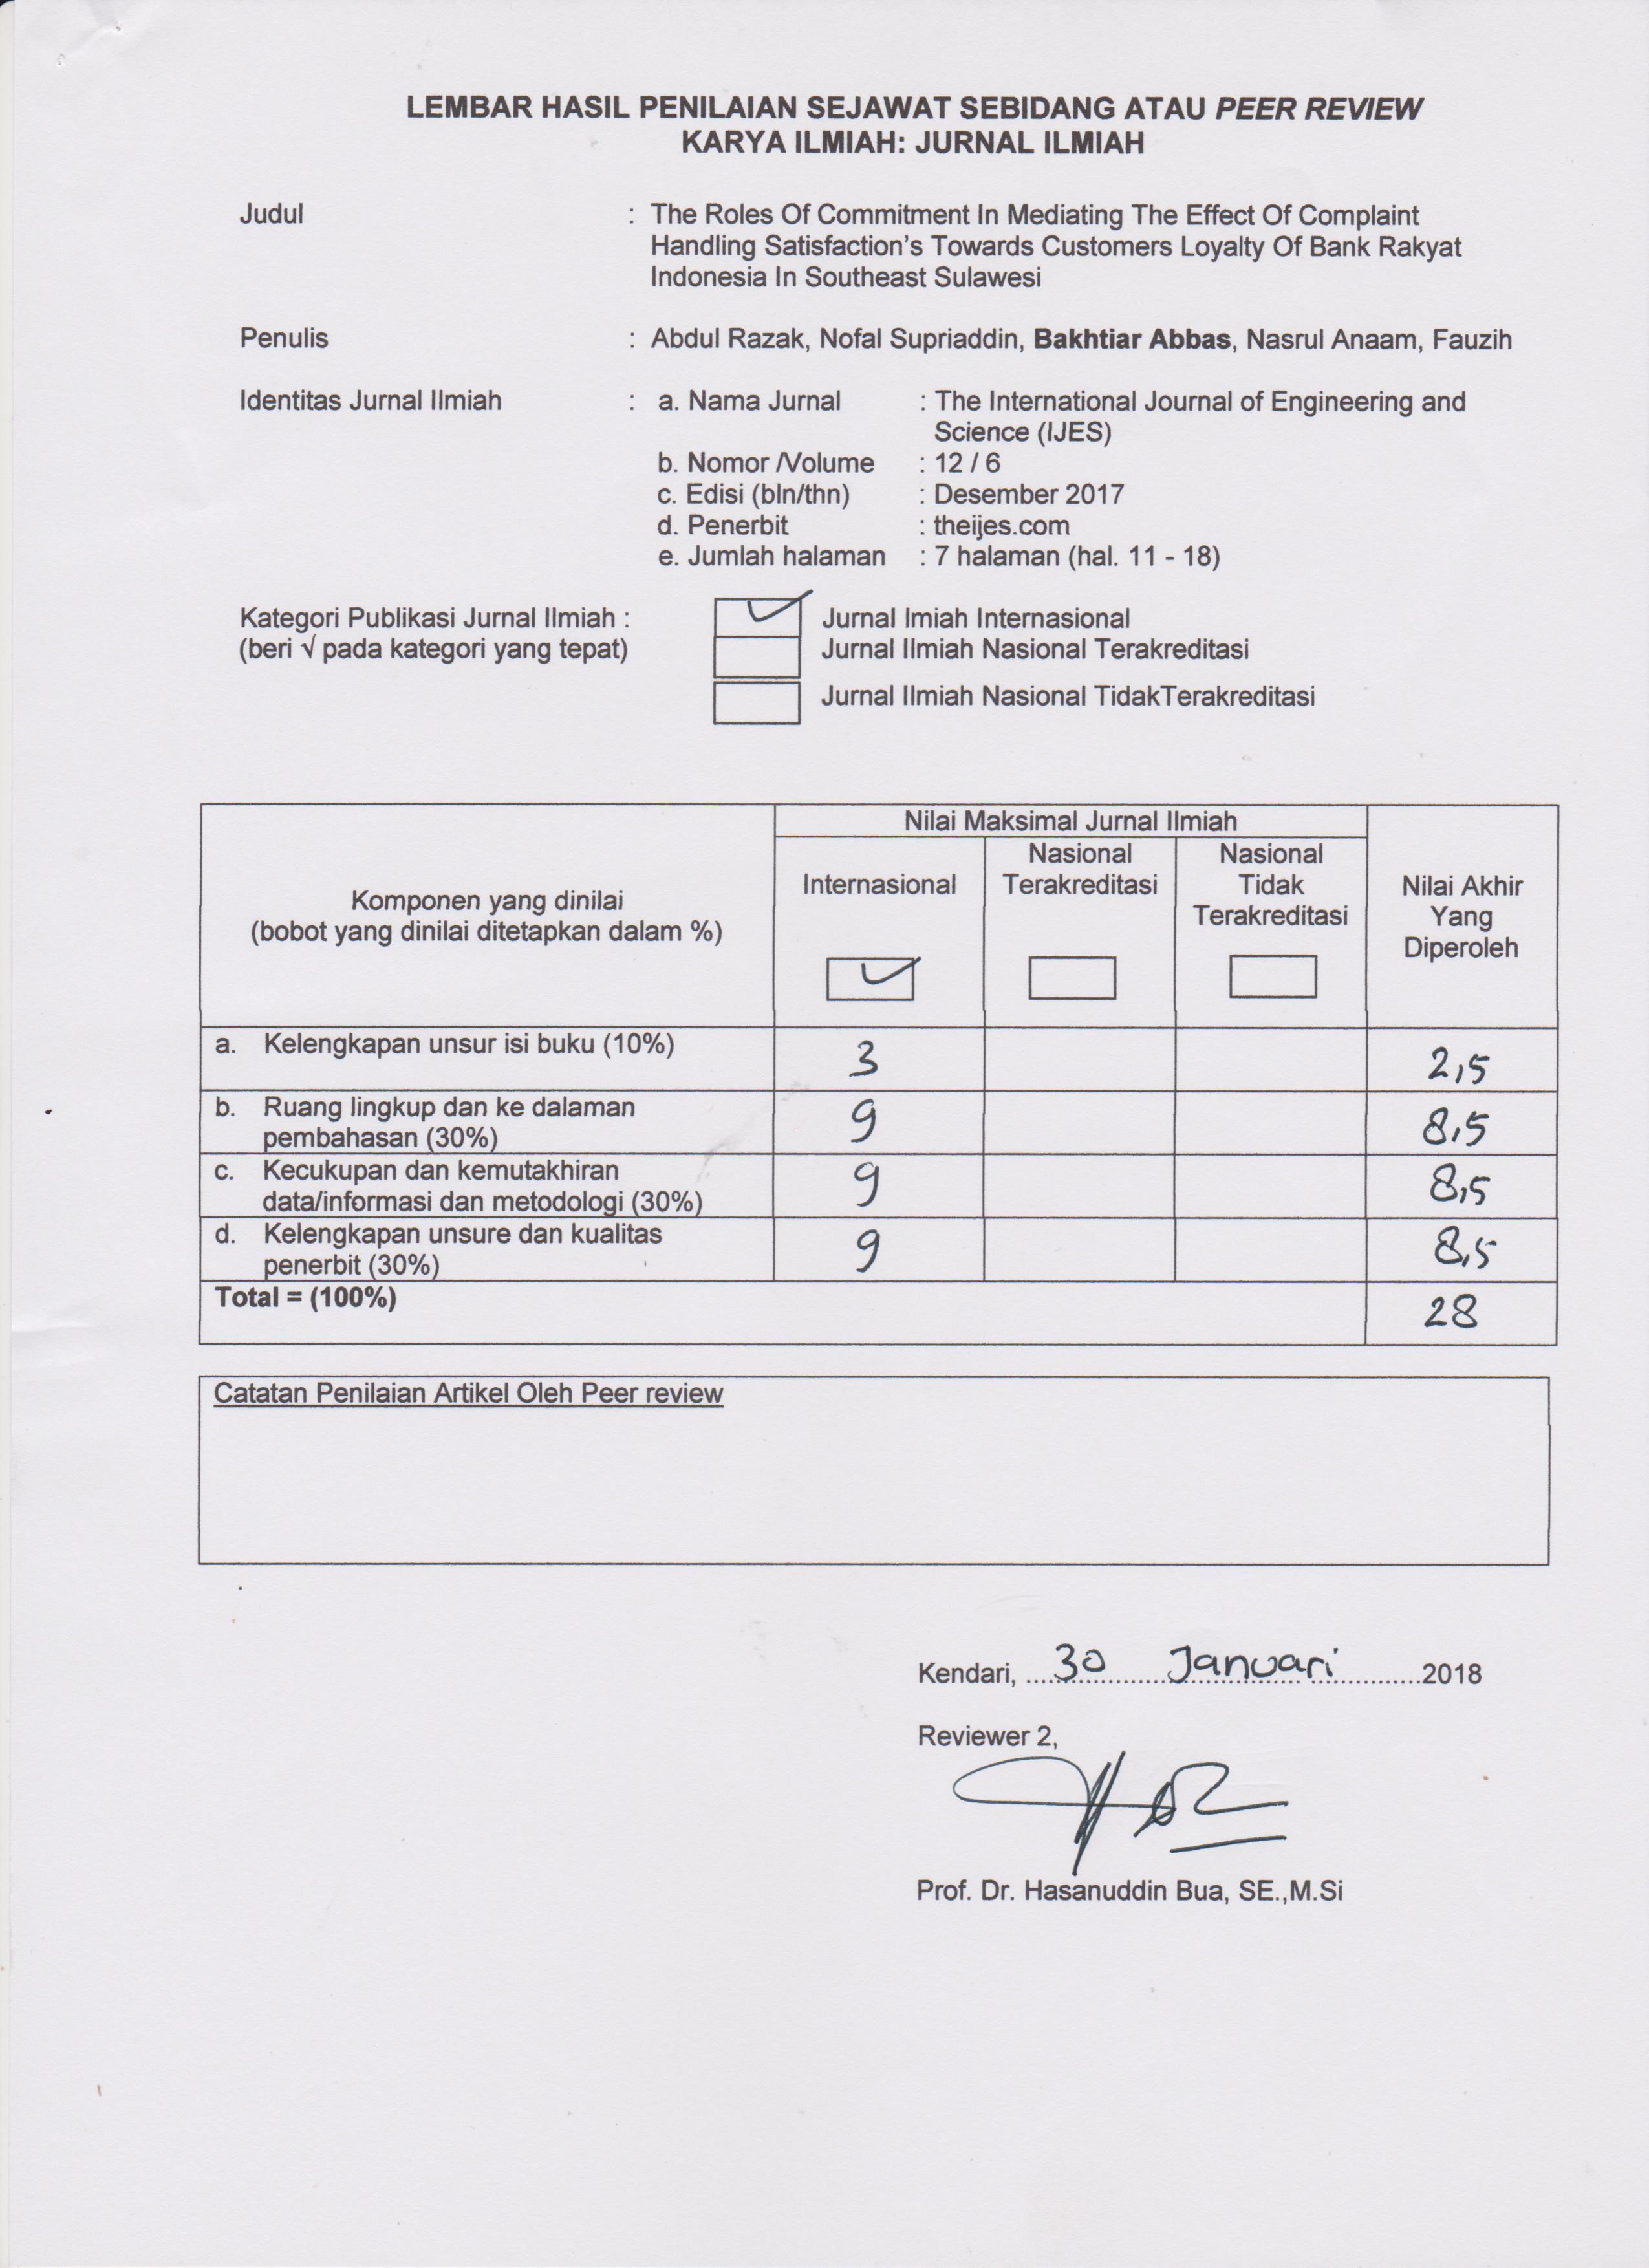 LEMBAR HASIL PENILAIAN SEJAWAT SEBIDANG ATAU PEER REVIEW
KARYA ILMIAH: JURNAL ILMIAH
Judul : The Roles Of Commitment In Mediating The Effect Of Complaint
Handling Satisfaction's Towards Customers Loyalty Of Bank Rakyat
Indonesia In Southeast Sulawesi
Penulis : Abdul Razak, Nofal Supriaddin, Bakhtiar Abbas, Nasrul Anaam, Fauzih
Identitas Jurnal Ilmiah : a. Nama Jurnal : The International Journal of Engineering and
Science (IJES)
b. Nomor /Volume : 12 / 6
c. Edisi (bln/thn) : Desember 2017
d. Penerbit : theijes.com
e. Jumlah halaman : 7 halaman (hal. 11 - 18)
Kategori Publikasi Jurnal Ilmiah : ✓ Jurnal Imiah Internasional
(beri √ pada kategori yang tepat) Jurnal Ilmiah Nasional Terakreditasi
Jurnal Ilmiah Nasional TidakTerakreditasi
Komponen yang dinilai
(bobot yang dinilai ditetapkan dalam %)
Nilai Maksimal Jurnal Ilmiah
Internasional
✓
Nasional
Terakreditasi
Nasional
Tidak
Terakreditasi
Nilai Akhir
Yang
Diperoleh
a. Kelengkapan unsur isi buku (10%) 3 2,5
b. Ruang lingkup dan ke dalaman
pembahasan (30%) 9 8,5
c. Kecukupan dan kemutakhiran
data/informasi dan metodologi (30%) 9 8,5
d. Kelengkapan unsure dan kualitas
penerbit (30%) 9 8,5
Total = (100%) 28
Catatan Penilaian Artikel Oleh Peer review
Kendari, 30 Januari 2018
Reviewer 2,
Prof. Dr. Hasanuddin Bua, SE.,M.Si